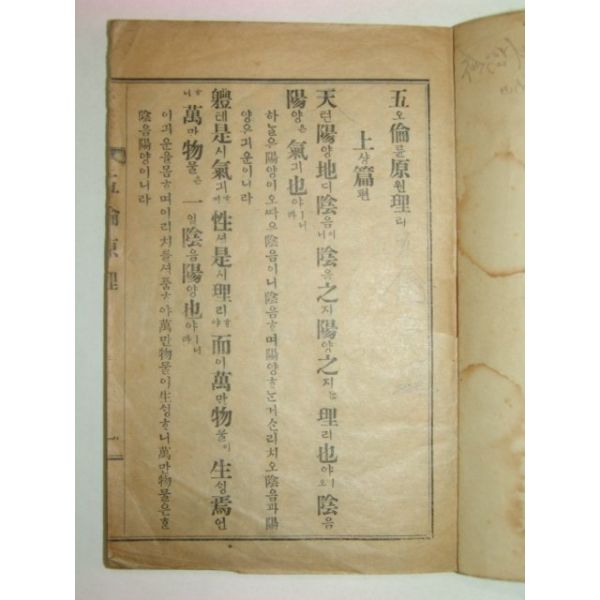 五오倫륜原원理리
上샹篇편
天텬陽양地디陰음니陰음之지陽양之지理리也야陰음
陽양은氣긔也야라
하늘은陽양이오따은陰음이니陰음ᄒᆞ며陽양ᄒᆞᄂᆞᆫ거슨리치오陰음과陽
양은긔운이니라
軆톄是시氣긔性셩是시理리而이萬만物물이生ᄉᆡᆼ焉언
萬만物물은一일陰음陽양也야라
이긔운을몸ᄒᆞ며이리치를셩품ᄒᆞ야萬만物물이生ᄉᆡᆼᄒᆞ니萬만物물은ᄒᆞᆫ
陰음陽양이니라
五倫原理
一